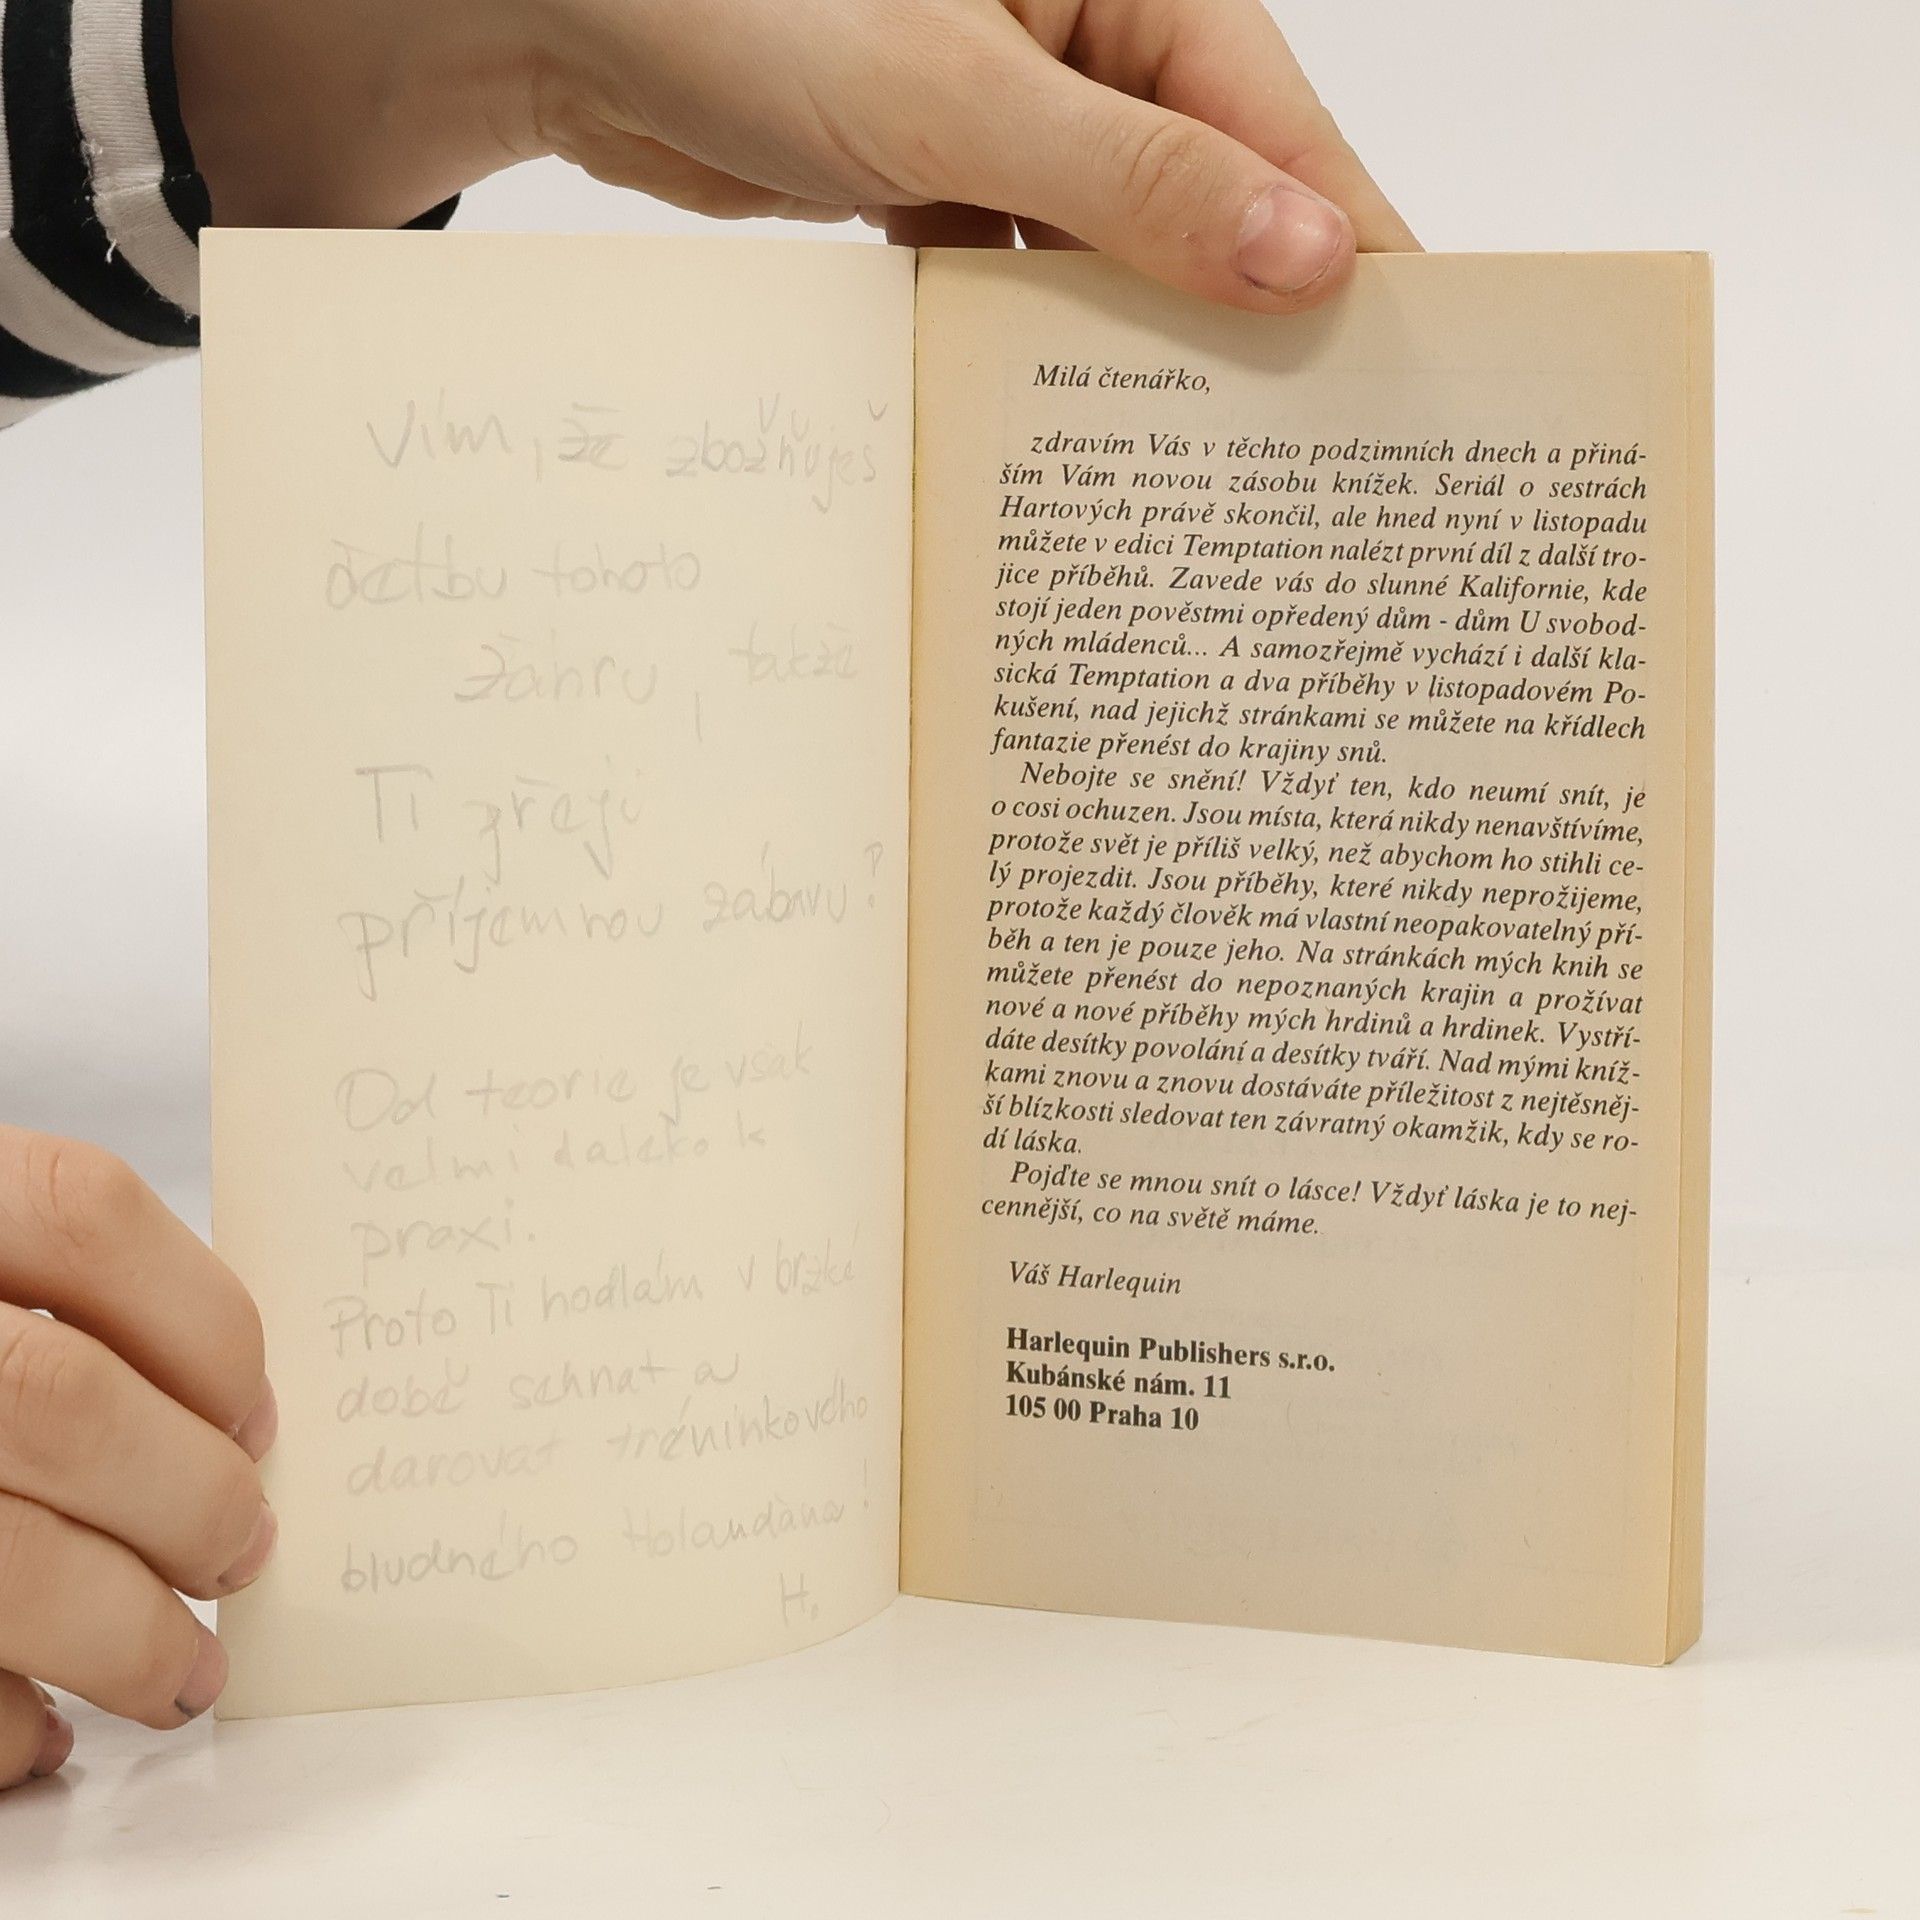 Vím, že zbožňuješ
četbu tohoto
žánru, takže
Ti přeji
příjemnou zábavu!
Od teorie je však
velmi daleko k
praxi.
Proto Ti hodlám v brzké
době sehnat a
darovat tréninkového
bludného Holanďana!
H.
Milá čtenářko,
zdravím Vás v těchto podzimních dnech a přiná-
ším Vám novou zásobu knížek. Seriál o sestrách
Hartových právě skončil, ale hned nyní v listopadu
můžete v edici Temptation nalézt první díl z další tro-
jice příběhů. Zavede vás do slunné Kalifornie, kde
stojí jeden pověstmi opředený dům - dům U svobod-
ných mládenců... A samozřejmě vychází i další kla-
sická Temptation a dva příběhy v listopadovém Po-
kušení, nad jejichž stránkami se můžete na křídlech
fantazie přenést do krajiny snů.
Nebojte se snění! Vždyť ten, kdo neumí snít, je
o cosi ochuzen. Jsou místa, která nikdy nenavštívíme,
protože svět je příliš velký, než abychom ho stihli ce-
lý projezdit. Jsou příběhy, které nikdy neprožijeme,
protože každý člověk má vlastní neopakovatelný pří-
běh a ten je pouze jeho. Na stránkách mých knih se
můžete přenést do nepoznaných krajin a prožívat
nové a nové příběhy mých hrdinů a hrdinek. Vystří-
dáte desítky povolání a desítky tváří. Nad mými kníž-
kami znovu a znovu dostáváte příležitost z nejtěsněj-
ší blízkosti sledovat ten závratný okamžik, kdy se ro-
dí láska.
Pojďte se mnou snít o lásce! Vždyť láska je to nej-
cennější, co na světě máme.
Váš Harlequin
Harlequin Publishers s.r.o.
Kubánské nám. 11
105 00 Praha 10